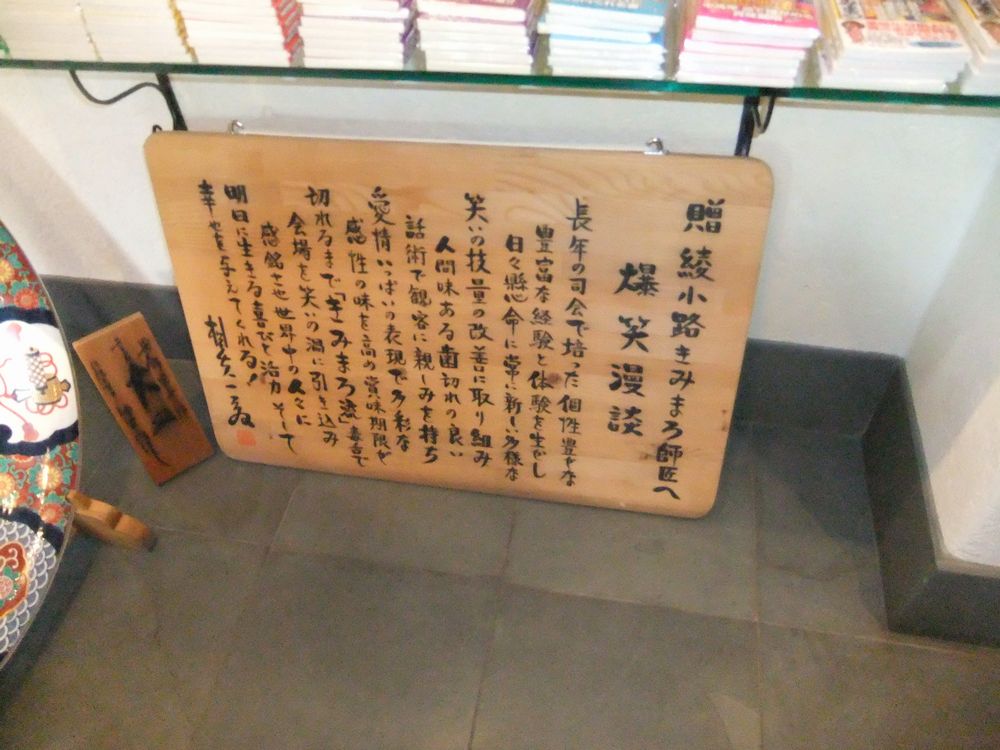 贈綾小路きみまろ師匠へ
爆笑漫談
長年の司会で培った個性豊かな
豊富な経験と体験を生かし
日々懸命に常に新しい多様な
笑いの技量の改善に取り組み
人間味ある歯切れの良い
話術で観客に親しみを持ち
愛情いっぱいの表現で多彩な
感性の味を高め賞味期限が
切れるまで「きみまろ流」毒舌で
会場を笑いの渦に引き込み
感銘させ世界中の人々に
明日に生きる喜びと活力そして
幸せを与えてくれる!